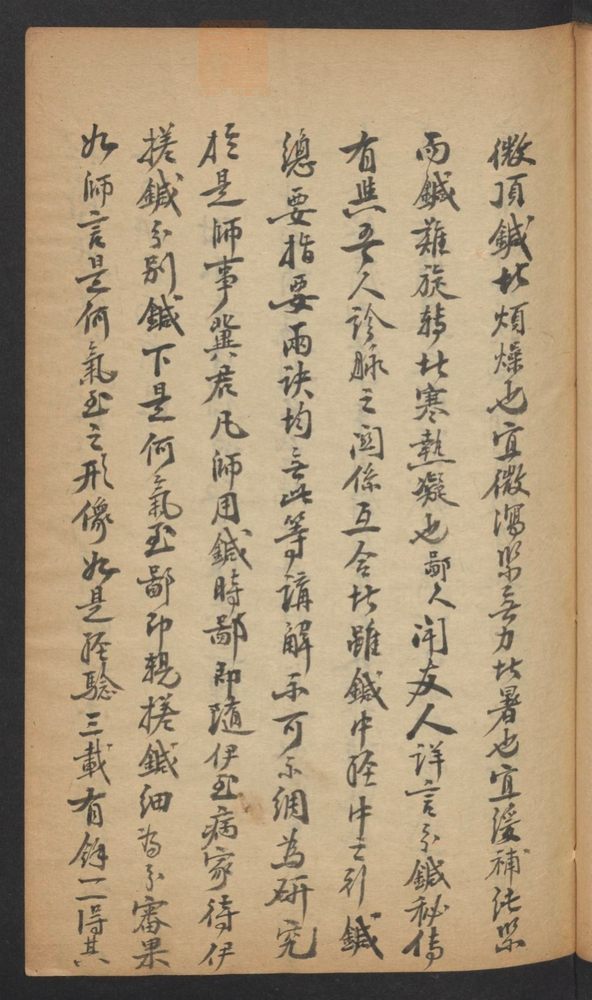 微頂鍼者煩燥也宜微瀉緊無力者暑也宜緩補純緊
而鍼難旋轉者寒熱癡也鄙人聞友人詳言分鍼秘傳
有與吾人診脉之関係互合者雖鍼中經中之引鍼
總要指要兩訣均無此等講解不可不細為研究
於是師事冀君凡師用鍼時鄙即隨伊至病家待伊
搓鍼分别鍼下是何氣至鄙即親搓鍼細為分審果
如師言是何氣至之形像如是經驗三載有餘一一得其